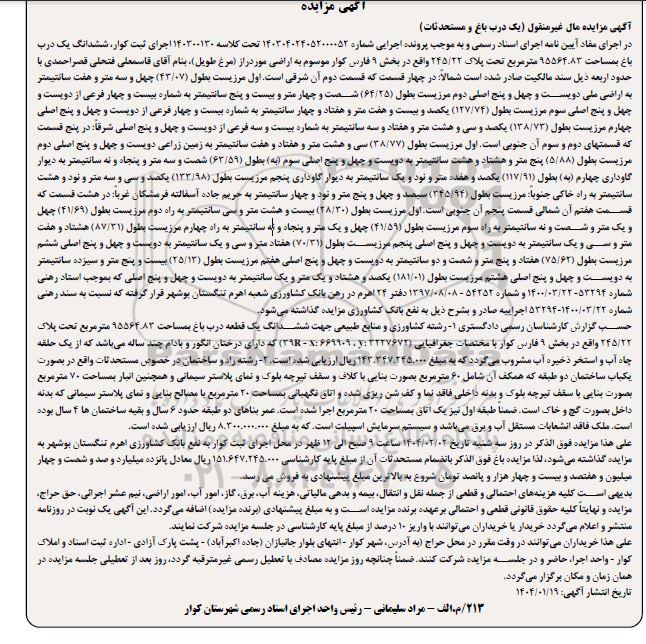 آگهی مزایده
آگهی مزایده مال غیرمنقول (یک درب باغ و مستحدثات)
در اجرای مفاد آیین نامه اجرای اسناد رسمی و به موجب پرونده اجرایی شماره ۱۴۰۳۰۴۰۲۴۰۵۲۰۰۰۰۵۲ تحت کلاسه ۱۴۰۳۰۰۱۳۰ اجرای ثبت کوار، ششدانگ یک درب
باغ بمساحت ۹۵۵۶۴.۸۳ مترمربع تحت پلاک ۲۴۵/۲۲ واقع در بخش ۹ فارس کوار موسوم به اراضی موردراز (مرغ طویل)، بنام آقای قاسمعلی فتحلی قصراحمدی با
حدود اربعه ذیل سند مالکیت صادر شده است شمالاً: در چهار قسمت که قسمت دوم آن شرقی است. اول مرزیست بطول (۴۳/۰۷) چهل و سه متر و هفت سانتیمتر
به اراضی ملی دویست و چهل و پنج اصلی دوم مرزیست بطول (۶۴/۲۵) شصت و چهار متر و بیست و پنج سانتیمتر به شماره بیست و چهار فرعی از دویست و
چهل و پنج اصلی سوم مرزیست بطول (۱۲۷/۷۴) یکصد و بیست و هفت متر و هفتاد و چهار سانتیمتر به شماره بیست و چهار فرعی از دویست و چهل و پنج اصلی
چهارم مرزیست بطول (۱۳۸/۷۳) یکصد و سی و هشت متر و هفتاد و سه سانتیمتر به شماره بیست و سه فرعی از دویست و چهل و پنج اصلی شرقاً: در پنج قسمت
که قسمتهای دوم و سوم آن جنوبی است. اول مرزیست بطول (۳۸/۷۷) سی و هشت متر و هفتاد و هفت سانتیمتر به زمین زراعی دویست و چهل و پنج اصلی دوم
مرزیست بطول (۵/۸۸) پنج متر و هشتاد و هشت سانتیمتر به دویست و چهل و پنج اصلی سوم (به) بطول (۶۳/۵۹) شصت و سه متر و پنجاه و نه سانتیمتر به دیوار
گاوداری چهارم (به) بطول (۱۱۷/۹۱) یکصد و هفده متر و نود و یک سانتیمتر به دیوار گاوداری پنجم مرزیست بطول (۱۳۳/۹۸) یکصد و سی و سه متر و نود و هشت
سانتیمتر به راه خاکی جنوباً: مرزیست بطول (۳۴۵/۹۴) سیصد و چهل و پنج متر و نود و چهار سانتیمتر به حریم جاده آسفالته فرمشگان غرباً: در هشت قسمت که
قسمت هفتم آن شمالی قسمت پنجم آن جنوبی است. اول مرزیست بطول (۲۸/۳۰) بیست و هشت متر و سی سانتیمتر به راه دوم مرزیست بطول (۴۱/۶۹) چهل
و یک متر و شصت و نه سانتیمتر به راه سوم مرزیست بطول (۴۱/۵۹) چهل و یک متر و پنجاه و نه سانتیمتر به راه چهارم مرزیست بطول (۸۷/۳۱) هشتاد و هفت
متر و سی و یک سانتیمتر به دویست و چهل و پنج اصلی پنجم مرزیست بطول (۷۰/۳۱) هفتاد متر و سی و یک سانتیمتر به دویست و چهل و پنج اصلی ششم
مرزیست بطول (۷۵/۶۲) هفتاد و پنج متر و شصت و دو سانتیمتر به دویست و چهل و پنج اصلی هفتم مرزیست بطول (۲۵/۱۳) بیست و پنج متر و سیزده سانتیمتر
به دویست و چهل و پنج اصلی هشتم مرزیست بطول (۱۸۱/۰۱) یکصد و هشتاد و یک متر و یک سانتیمتر به دویست و چهل و پنج اصلی که بموجب اسناد رهنی
شماره ۵۳۲۹۴-۱۴۰۰/۰۳/۲۲ و شماره ۵۴۲۵۲ - ۱۳۹۷/۰۸/۰۸ دفتر ۲۴ اهرم در رهن بانک کشاورزی شعبه اهرم تنگستان بوشهر قرار گرفته که نسبت به سند رهنی
شماره ۱۴۰۰/۰۳/۲۲-۵۳۲۹۴ اجراییه صادر و بشرح ذیل به نفع بانک کشاورزی مزایده گذاشته می‌شود.
حسب گزارش کارشناسان رسمی دادگستری ۱- رشته کشاورزی و منابع طبیعی جهت ششدانگ یک قطعه درب باغ بمساحت ۹۵۵۶۴.۸۳ مترمربع تحت پلاک
۲۴۵/۲۲ واقع در بخش ۹ فارس کوار با مختصات جغرافیایی (۳۹R - x: ۶۶۹۹۰۹، y: ۳۲۲۷۶۷۲) که دارای درختان انگور و بادام چند ساله می‌باشد که از یک حلقه
چاه آب و استخر ذخیره آب مشروب می‌گردد که به مبلغ ۱۴۳.۳۴۷.۲۴۵.۰۰۰ ریال ارزیابی شده است. ۲- رشته راه و ساختمان در خصوص مستحدثات واقع در بصورت
یکباب ساختمان دو طبقه که همکف آن شامل ۶۰ مترمربع بصورت بنایی با کلاف و سقف تیرچه بلوک و نمای پلاستر سیمانی و همچنین انبار بمساحت ۷۰ مترمربع
بصورت بنایی با سقف تیرچه بلوک و بدنه داخلی فاقد نما و کف شن ریزی شده و اتاق نگهبانی بمساحت ۲۰ مترمربع با مصالح بنایی و نمای پلاستر سیمانی که بدنه
داخل بصورت گچ و خاک است. ضمناً طبقه اول نیز یک اتاق بمساحت ۲۰ مترمربع اجرا شده است. عمر بناهای دو طبقه حدود ۶ سال و بقیه ساختمان ها ۴ سال بوده
است. ملک فاقد انشعابات مستقل آب و برق می‌باشد و سیستم سرمایش اسپیلت است. که به مبلغ ۸.۳۰۰.۰۰۰.۰۰۰ ریال ارزیابی شده است.
علی هذا مزایده فوق الذکر در روز سه شنبه تاریخ ۱۴۰۴/۰۲/۰۴ ساعت ۹ صبح الی ۱۲ ظهر در محل اجرای ثبت کوار به نفع بانک کشاورزی اهرم تنگستان بوشهر به
مزایده گذاشته می‌شود، لذا مزایده باغ فوق الذکر بانضمام مستحدثات آن از مبلغ پایه کارشناسی ۱۵۱.۶۴۷.۲۴۵.۰۰۰ ریال معادل پانزده میلیارد و صد و شصت و چهار
میلیون و هفتصد و بیست و چهار هزار و پانصد تومان شروع به بالاترین مبلغ پیشنهادی به فروش می رسد.
بدیهی است کلیه هزینه‌های احتمالی و قطعی از جمله نقل و انتقال، بیمه و بدهی مالیاتی، هزینه آب، برق، گاز، امور آب، امور اراضی، نیم عشر اجرائی، حق حراج،
مزایده و نهایتاً کلیه حقوق قانونی قطعی و احتمالی برعهده برنده مزایده است و به مبلغ پیشنهادی (برنده مزایده) اضافه می‌گردد. این آگهی یک نوبت در روزنامه
منتشر و اعلام می‌گردد خریدار یا خریداران می‌توانند با واریز ۱۰ درصد از مبلغ پایه کارشناسی در جلسه مزایده شرکت نمایند.
علی هذا خریداران می‌توانند در وقت مقرر در محل حراج (به آدرس، شهر کوار - انتهای بلوار جانبازان (جاده اکبرآباد) - پشت پارک آزادی - اداره ثبت اسناد و املاک
کوار - واحد اجرا، حاضر و در جلسه مزایده شرکت کنند. ضمناً چنانچه روز مزایده مصادف با تعطیل رسمی غیرمترقبه گردد، روز بعد از تعطیلی جلسه مزایده در
همان زمان و مکان برگزار می‌گردد.
تاریخ انتشار آگهی: ۱۴۰۴/۰۱/۱۹
۲۱۳/م.الف - مراد سلیمانی - رئیس واحد اجرای اسناد رسمی شهرستان کوار